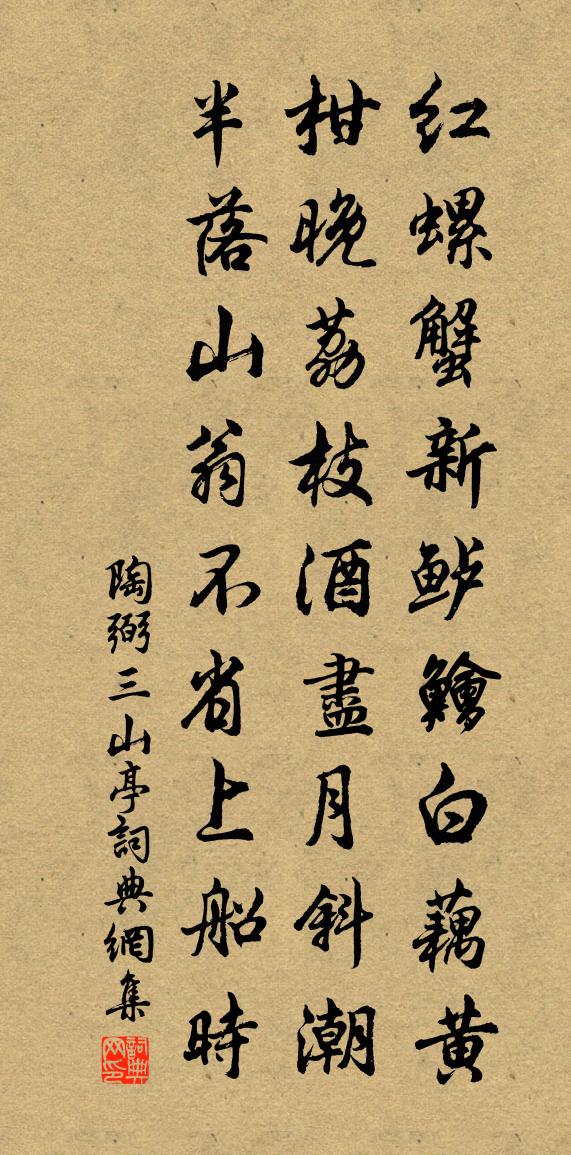 红螺蟹新鲈鱠白藕黄
柑晚荔枝酒盡月斜潮
半落山翁不省上船時
陶弼三山亭詞典網集
詞典网印